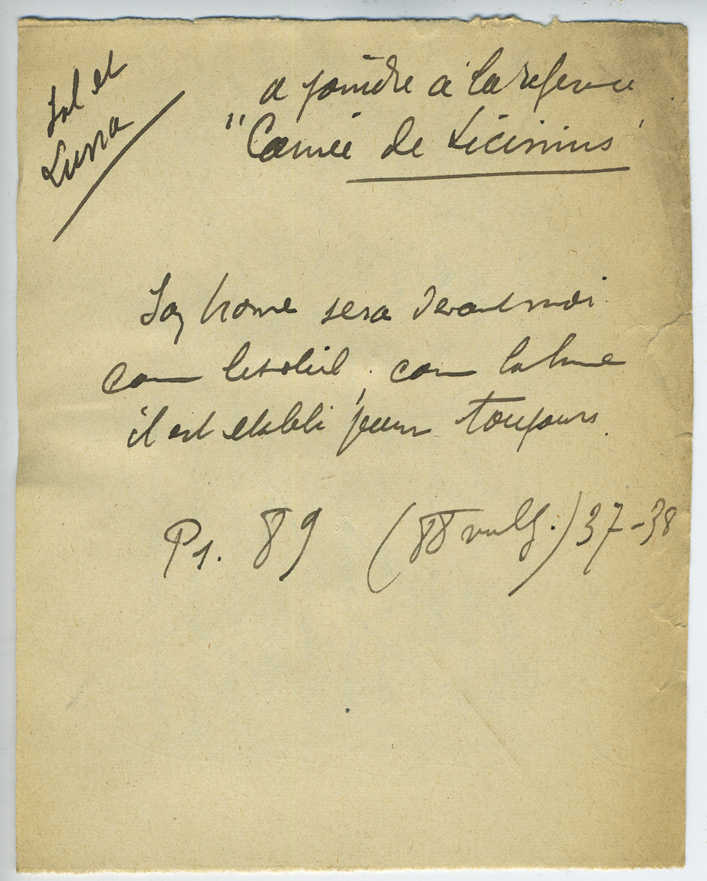 Sol et
Luna
a joindre à la reference
"Camée de Licinius"
Son trone sera devant moi
com le soleil, com la lune
il est etabli pour toujours.
Ps. 89 (88 vulg.) 37-38